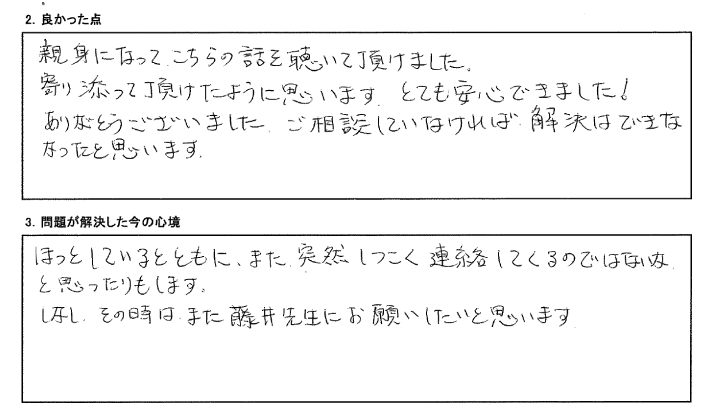 2. 良かった点
親身になって、こちらの話を聴いて頂けました。
寄り添って頂けたように思います。とても安心できました！
ありがとうございました。ご相談していなければ、解決はできな
かったと思います。
3. 問題が解決した今の心境
ほっとしているとともに、また、突然しつこく連絡してくるのではないか
と思ったりもします。
しかし、その時は、また藤井先生にお願いしたいと思います